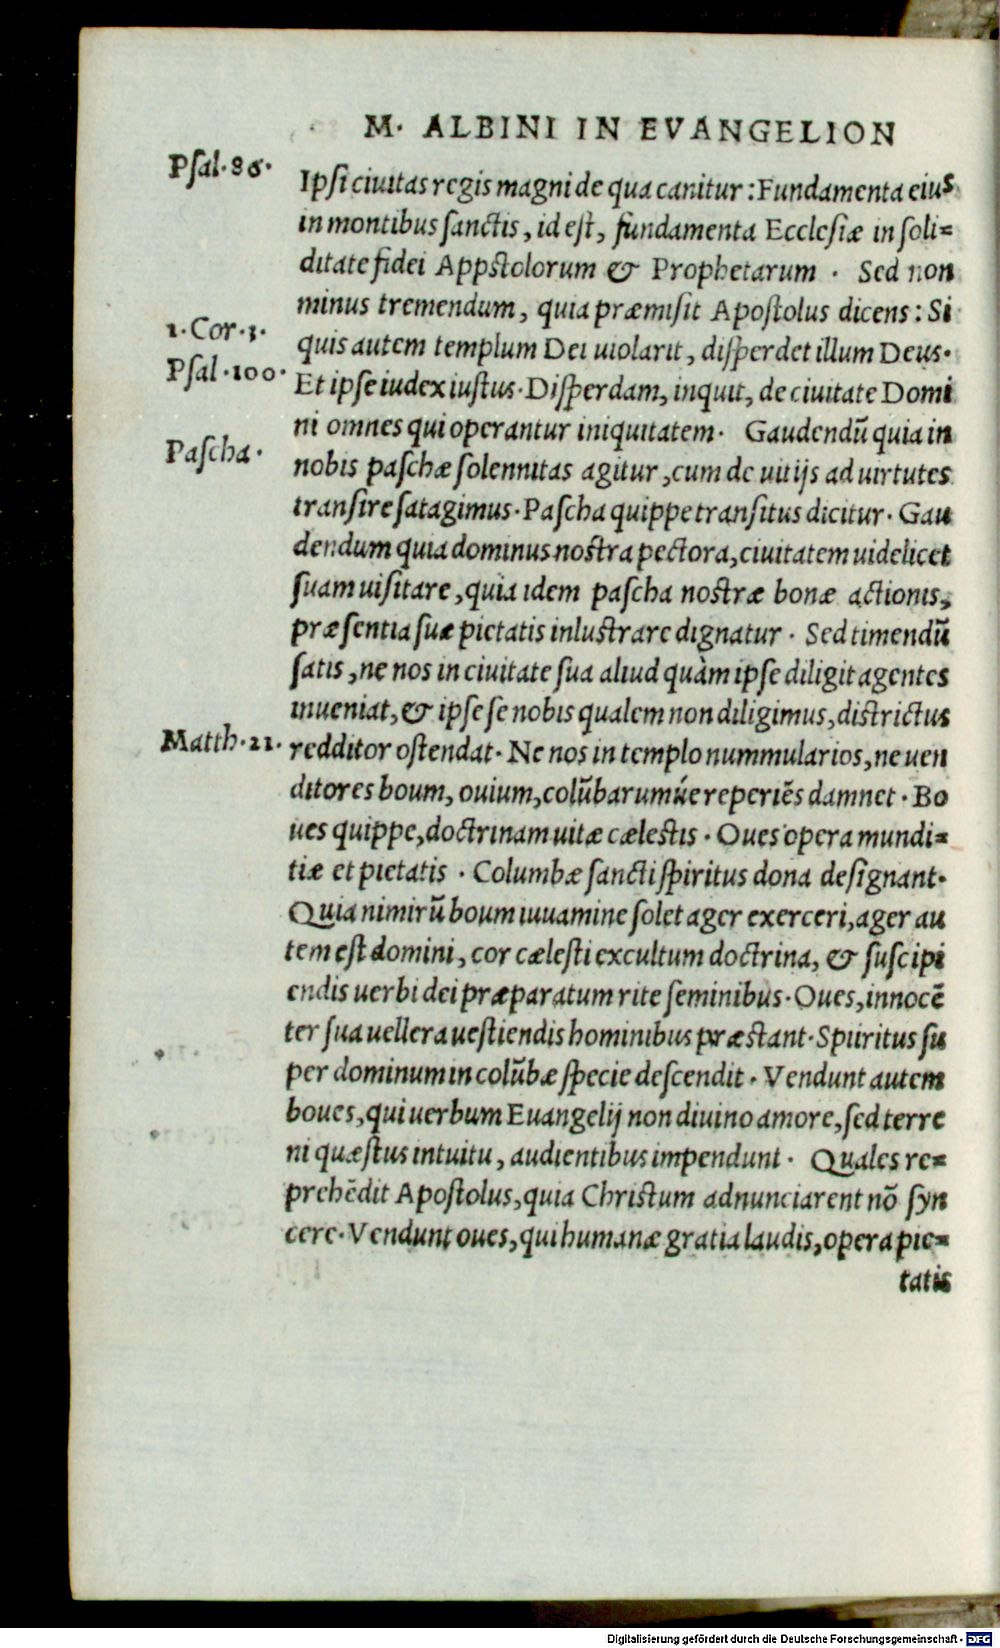 M. ALBINI IN EVANGELION
Psal.86.
Ipsi ciuitas regis magni de qua canitur: Fundamenta eius
in montibus sanctis, id est, fundamenta Ecclesiæ in soli=
ditate fidei Appstolorum & Prophetarum. Sed non
minus tremendum, quia præmisit Apostolus dicens: Si
1.Cor.3.
quis autem templum Dei uiolarit, disperdet illum Deus.
Psal.100.
Et ipse iudex iustus. Disperdam, inquit, de ciuitate Domi
ni omnes qui operantur iniquitatem. Gaudendũ quia in
Pascha.
nobis paschæ solennitas agitur, cum de uitijs ad uirtutes
transire satagimus. Pascha quippe transitus dicitur. Gau
dendum quia dominus nostra pectora, ciuitatem uidelicet
suam uisitare, quia idem pascha nostræ bonæ actionis,
præsentia suæ pietatis inlustrare dignatur. Sed timendũ
satis, ne nos in ciuitate sua aliud quàm ipse diligit agentes
inueniat, & ipse se nobis qualem non diligimus, districtus
Matth.21.
redditor ostendat. Ne nos in templo nummularios, ne uen
ditores boum, ouium, colũbarumúe reperiẽs damnet. Bo
ues quippe, doctrinam uitæ cælestis. Oues opera mundi=
tiæ et pietatis. Columbæ sancti spiritus dona designant.
Quia nimirũ boum iuuamine solet ager exerceri, ager au
tem est domini, cor cælesti excultum doctrina, & suscipi
endis uerbi dei præparatum rite seminibus. Oues, innocẽ
ter sua uellera uestiendis hominibus præstant. Spiiritus su
per dominum in colũbæ specie descendit. Vendunt autem
boues, qui uerbum Euangelij non diuino amore, sed terre
ni quæstus intuitu, audientibus impendunt. Quales re=
prehẽdit Apostolus, quia Christum adnunciarent nõ syn
cere. Vendunt oues, qui humanæ gratia laudis, opera pie=
tatis
Digitalisierung gefördert durch die Deutsche Forschungsgemeinschaft - DFG